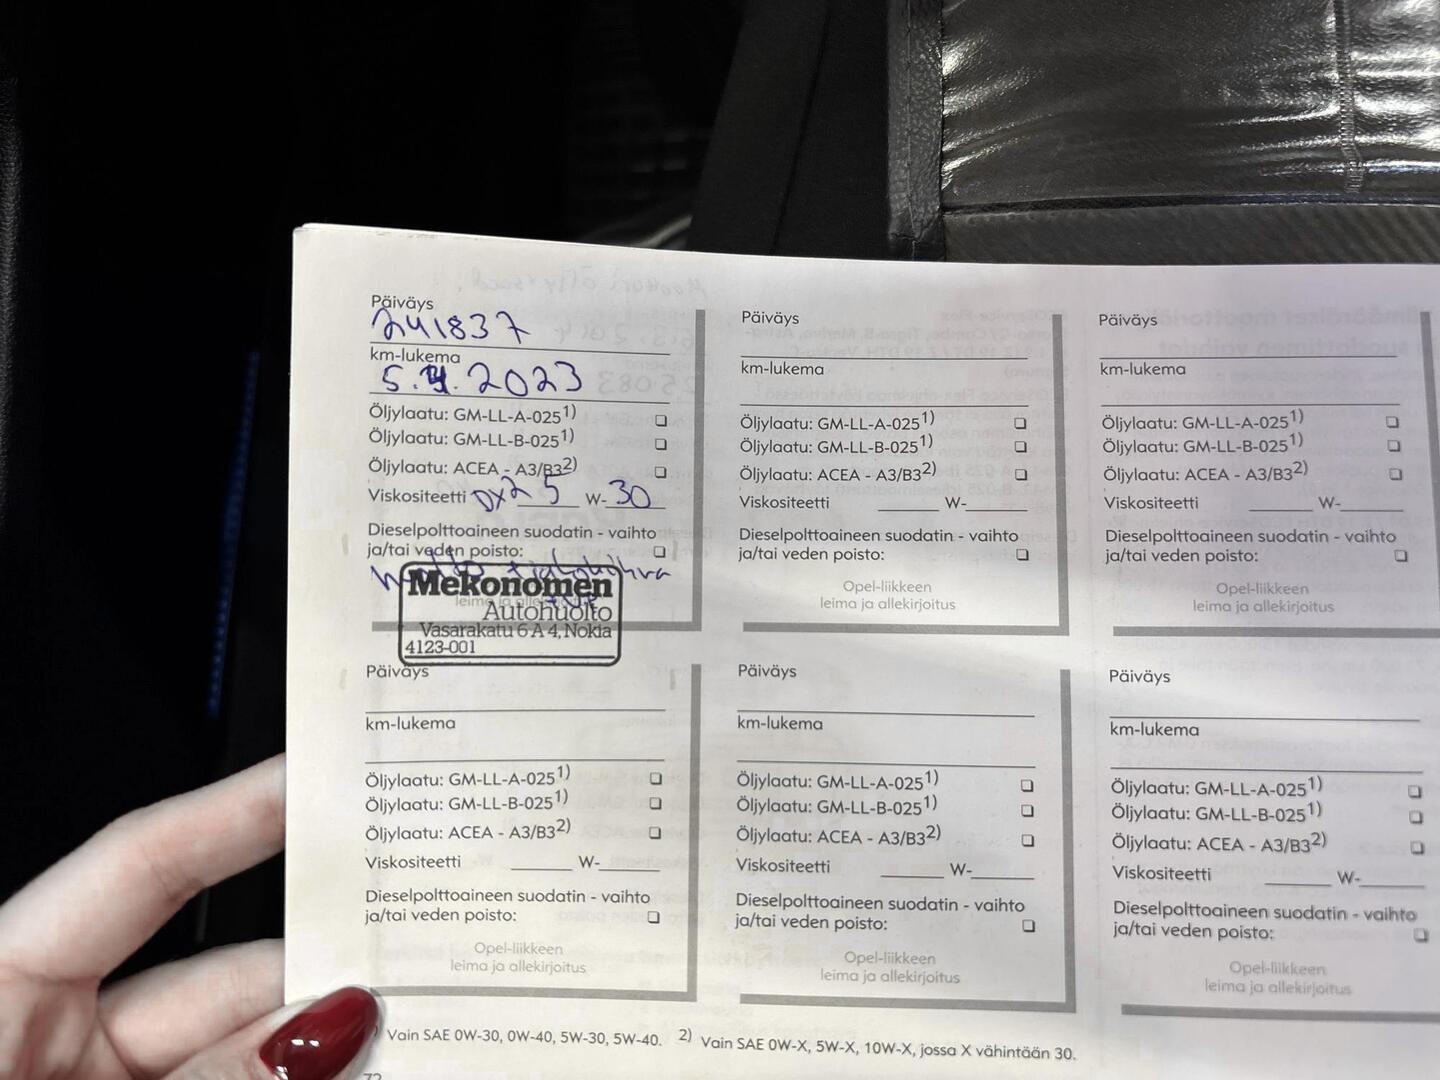 Päiväys
241837
km-lukema
5.4.2023
Öljylaatu: GM-LL-A-025 1)
Öljylaatu: GM-LL-B-025 1)
Öljylaatu: ACEA - A3/B3 2)
Viskositeetti DX2 5 W-30
Dieselpolttoaineen suodatin - vaihto
ja/tai veden poisto:
huolto
Mekonomen
leima ja
Autohuolto
Vasarakatu 6 A 4, Nokia
4123-001
Päiväys
km-lukema
Öljylaatu: GM-LL-A-025 1)
Öljylaatu: GM-LL-B-025 1)
Öljylaatu: ACEA - A3/B3 2)
Viskositeetti ____ W-____
Dieselpolttoaineen suodatin - vaihto
ja/tai veden poisto:
Opel-liikkeen
leima ja allekirjoitus
Päiväys
km-lukema
Öljylaatu: GM-LL-A-025 1)
Öljylaatu: GM-LL-B-025 1)
Öljylaatu: ACEA - A3/B3 2)
Viskositeetti ____ W-____
Dieselpolttoaineen suodatin - vaihto
ja/tai veden poisto:
Opel-liikkeen
leima ja allekirjoitus
Päiväys
km-lukema
Öljylaatu: GM-LL-A-025 1)
Öljylaatu: GM-LL-B-025 1)
Öljylaatu: ACEA - A3/B3 2)
Viskositeetti ____ W-____
Dieselpolttoaineen suodatin - vaihto
ja/tai veden poisto:
Opel-liikkeen
leima ja allekirjoitus
Päiväys
km-lukema
Öljylaatu: GM-LL-A-025 1)
Öljylaatu: GM-LL-B-025 1)
Öljylaatu: ACEA - A3/B3 2)
Viskositeetti ____ W-____
Dieselpolttoaineen suodatin - vaihto
ja/tai veden poisto:
Opel-liikkeen
leima ja allekirjoitus
Päiväys
km-lukema
Öljylaatu: GM-LL-A-025 1)
Öljylaatu: GM-LL-B-025 1)
Öljylaatu: ACEA - A3/B3 2)
Viskositeetti ____ W-____
Dieselpolttoaineen suodatin - vaihto
ja/tai veden poisto:
Opel-liikkeen
leima ja allekirjoitus
) Vain SAE 0W-30, 0W-40, 5W-30, 5W-40. 2) Vain SAE 0W-X, 5W-X, 10W-X, jossa X vähintään 30.
72